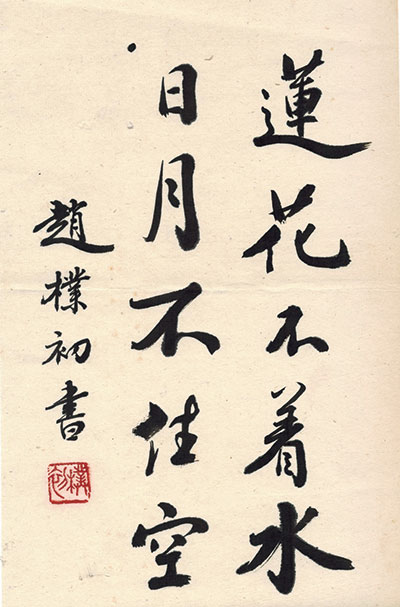 蓮花不着水
日月不住空
趙樸初書
樸初